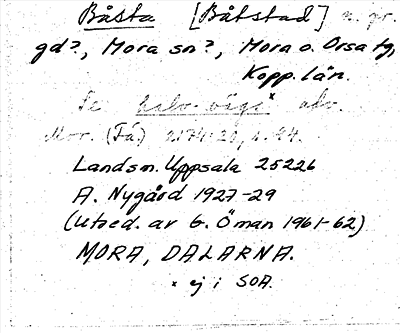 Båsta [Båtstad] n. pr.
gd?, Mora sn?, Mora o. Orsa tg,
Kopp. län.
Se halv-vägs x adv.
Mor. (Få)
Landsm. Uppsala 25226
A. Nygård 1927-29
(Utred. av G. Öman 1961-62)
MORA, DALARNA.
x ej i SOA.